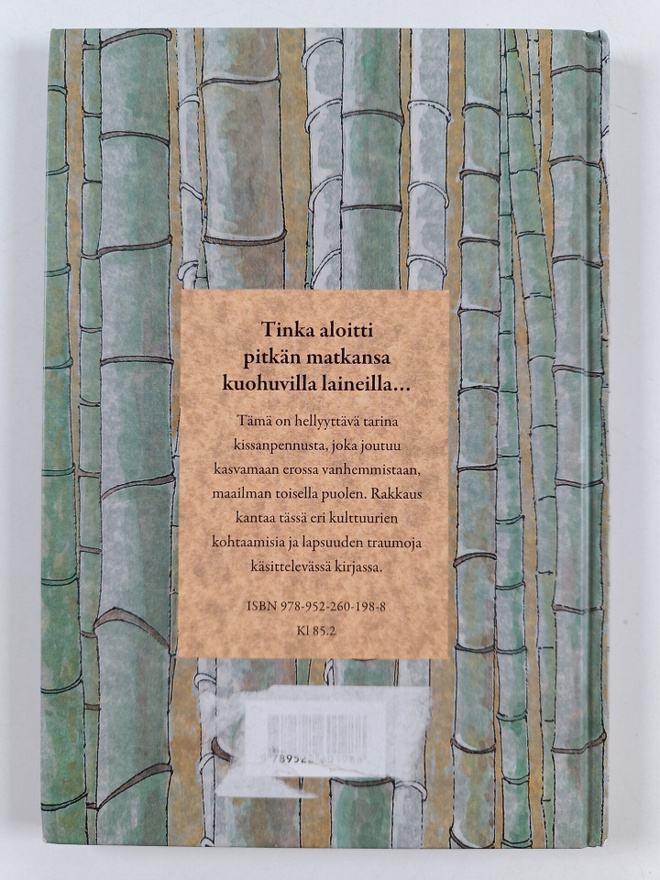 Tinka aloitti
pitkän matkansa
kuohuvilla laineilla...
Tämä on hellyyttävä tarina
kissanpennusta, joka joutuu
kasvamaan erossa vanhemmistaan,
maailman toisella puolen. Rakkaus
kantaa tässä eri kulttuurien
kohtaamisia ja lapsuuden traumoja
käsittelevässä kirjassa.
ISBN 978-952-260-198-8
Kl 85.2